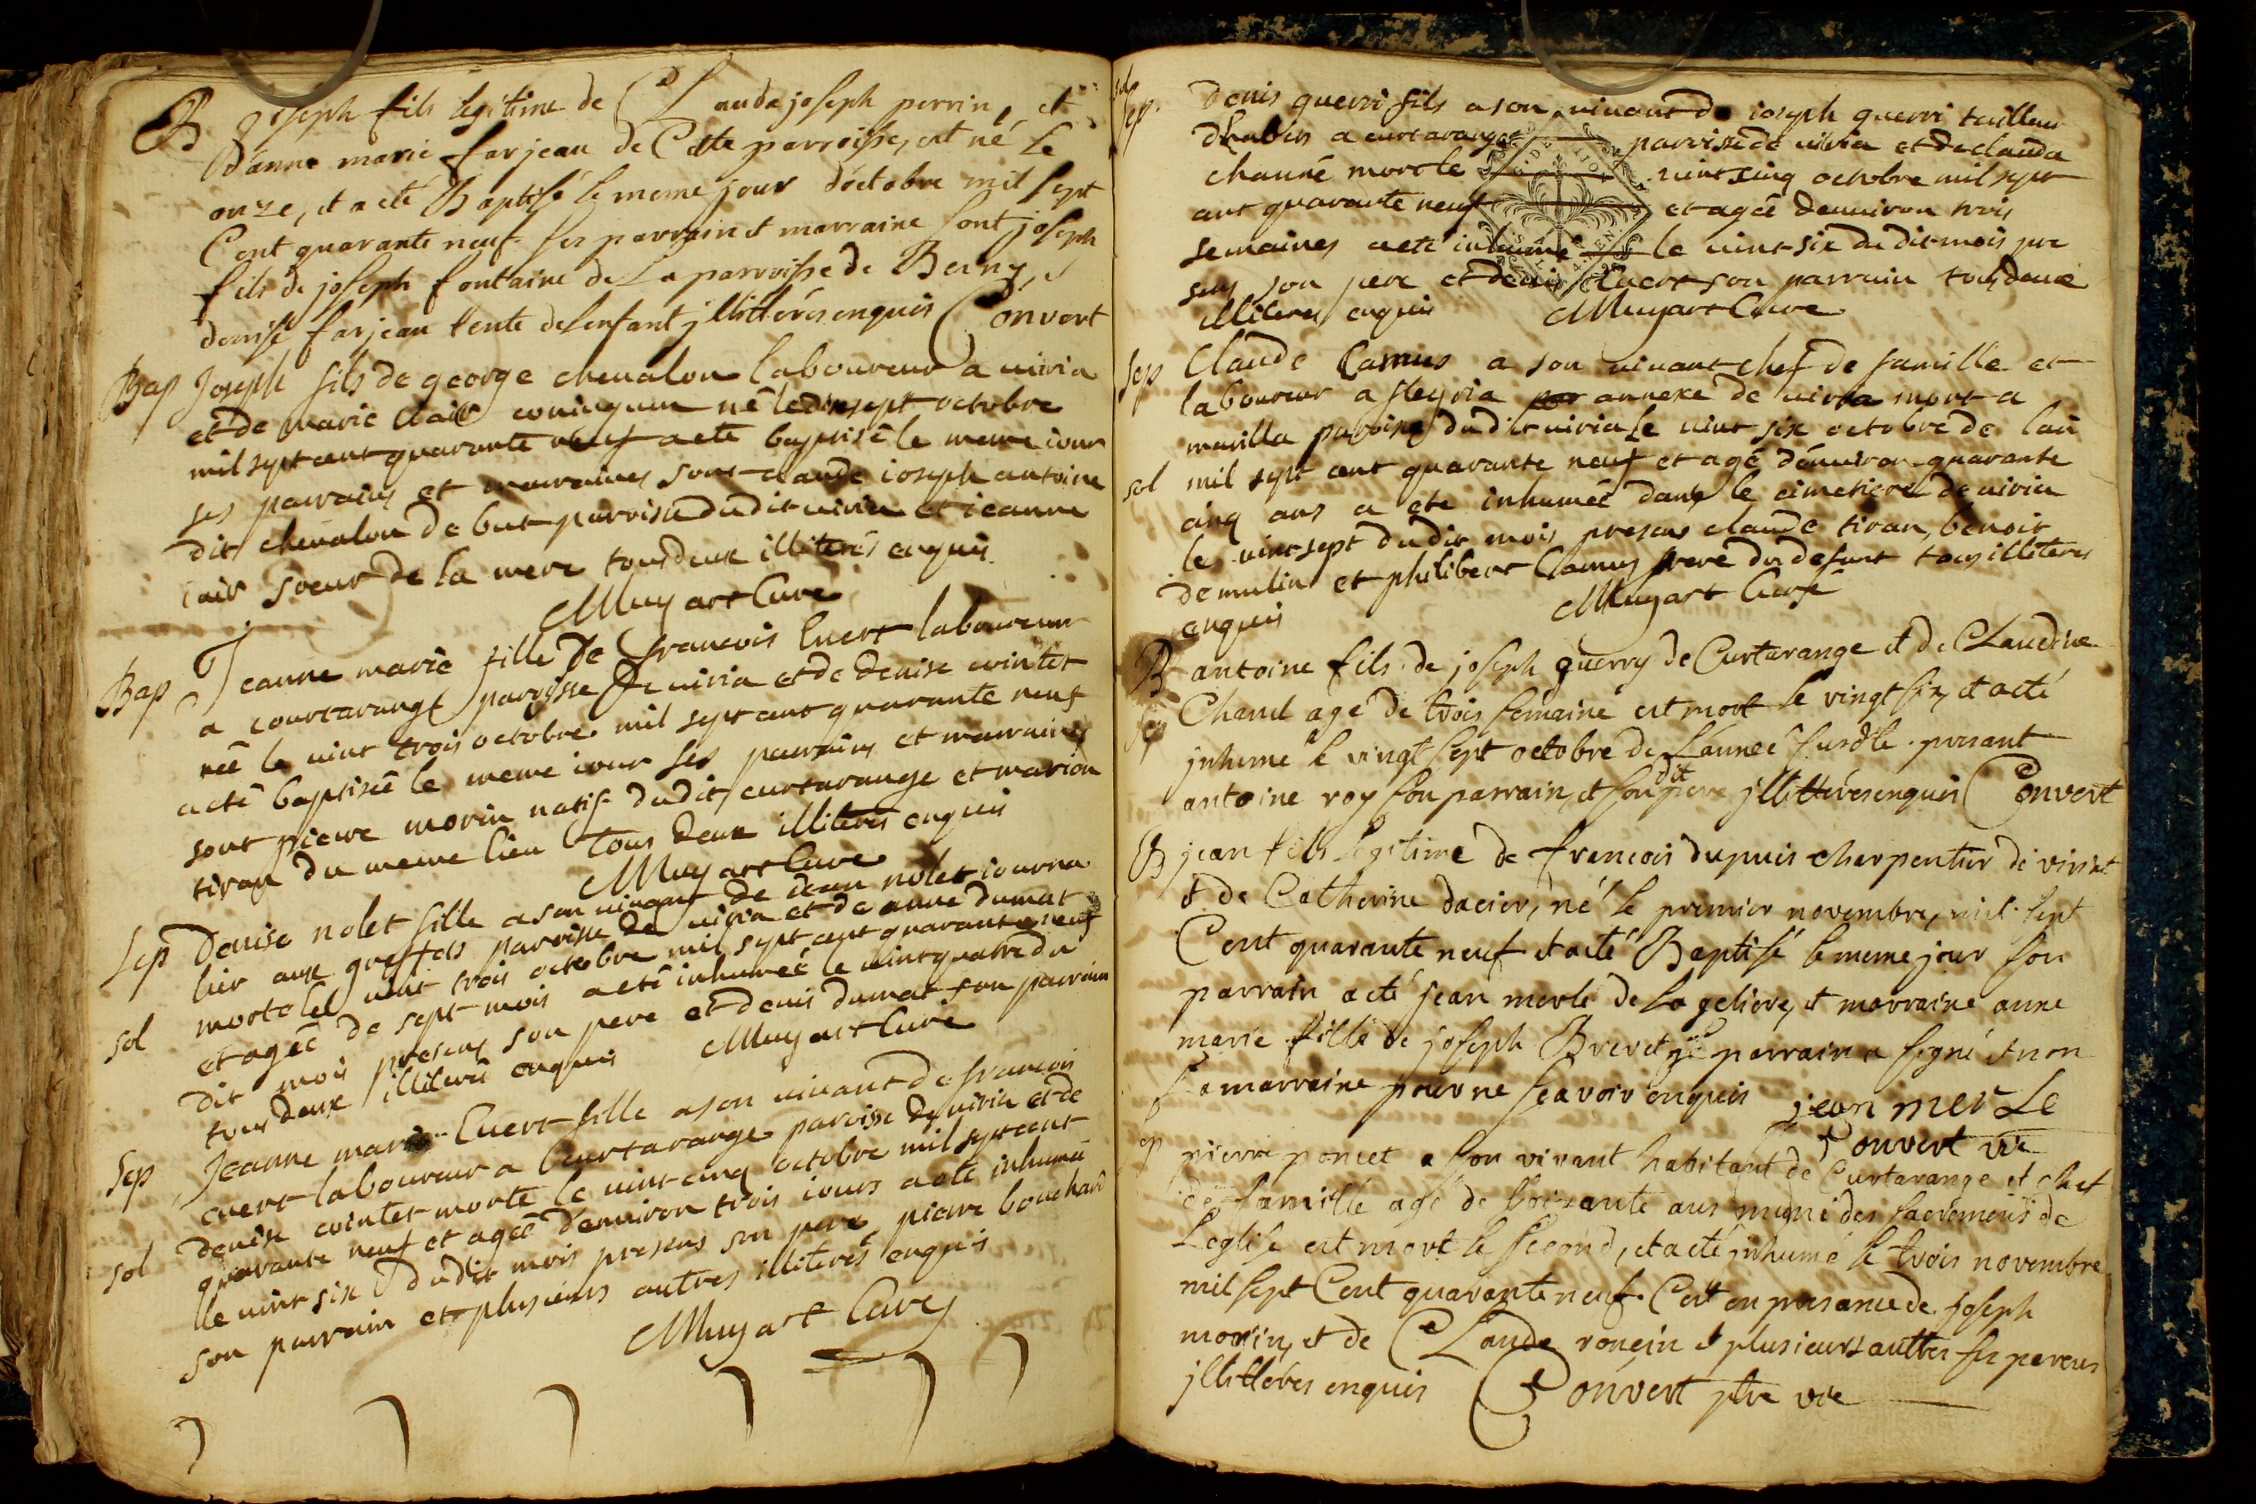 B joseph fils legitime de Claude joseph perrin, et
D'anne marie farjeau de Cette parroisse, est né le
onze, et a eté Baptisé le meme jour d'octobre mil sept
Cent quarante neuf ses parrain et marraine sont joseph
fils de joseph fontaine de La parroisse de Beny, et
denise farjeau tente de lenfant jllittérés enquis Convert
Bap Joseph fils de george chevalon laboureur a viria
et de marie Clair né le dixsept octobre
mil sept cent quarante neuf a ete baptisé le meme iour
ses parrains et marraines sont claude ioseph antoine
dit chevalon de but parroisse dudit viria et ieanne
Clair soeur de la mere tous deux illiteres enquis
Muyart Curé
Bap Jeanne marie fille de francois Cuert laboureur
a courtarange parroisse de viria et de denise cointet
née le vint trois octobre mil sept cent quarante neuf
a eté baptisée le meme iour ses parrains et marraines
sont pierre morin natif dudit curtarange et marion
tiran du meme lieu tous deux illiteres enquis
Muyart Curé
Sep Denise nolet fille a son vivant de iean nolet iourna
lier aux greffets parroisse de viria et de anne dumat
morte le vint trois octobre mil sept cent quarante neuf
sol et agée de sept mois a eté inhumée le vint quatre du
dit mois presens son pere et denis dumat son parrain
tous deux illiteres enquis Muyart Curé
Sep Jeanne marie Cuert fille a son vivant de francois
cuert laboureur a Curtarange parroisse de viria et de
denise cointet morte le vint cinq octobre mil sept cent
sol quarante neuf et agée d'environ trois iours a eté inhumée
le vint six dudit mois presens son pere, pierre bouchard
son parrain et plusieurs autres illiteres enquis
Muyart Curé
sol
sep Denis guerri fils a son vivant de ioseph guerri tailleur
d'habis a curtarange parroisse de viria et de clauda
channé mort le vint cinq octobre mil sept
cent quarante neuf et agée d'environ trois
semaines a eté inhumé le vint six du dit mois pre
sens son pere et denis Cuert son parrain tous deux
illiteres enquis Muyart Curé
Sep Claude Camus a son vivant chef de famille et
laboureur a fleyria annexe de viria mort a
marilla parroisse dudit viria le vint six octobre de lan
sol mil sept cent quarante neuf et agé d'environ quarante
cinq ans a ete inhumée dans le cimetiere de viria
le vint sept dudit mois presens claude tiran, benoit
demulin et philibert Camus frere du defunt tous illiteres
enquis Muyart Curé
B antoine fils de joseph guerry de Curtarange et de Claudine
sep Chanel agé de trois semaine est mort le vingt six, et a eté
jnhumé le vingt sept octobre de L'année susdte. presant
antoine roy son parrain, et son dit pere jllittérés enquis Convert
B jean fils legitime de francois dupuis charpentier de viriat
et de Catherine dacier, né le premier novembre, mil sept
Cent quarante neuf et a eté Baptisé le meme jour son
parrain a eté jean merle de la geliere, et marraine anne
marie fille de joseph Brevet, le parrain a signé et non
La marraine pour ne sçavoir enquis jean merLe
Convert vre
sep pierre poncet a son vivant habitant de Curtarange et chef
de famille agé de soixante ans muni des sacrements de
L'eglise est mort le second, et a eté jnhumé le trois novembre
mil sept Cent quarante neuf. C'est en presance de joseph
morin, et de Claude ronçin et plusieurs autres ses parens
jllittérés enquis Convert ptre vre